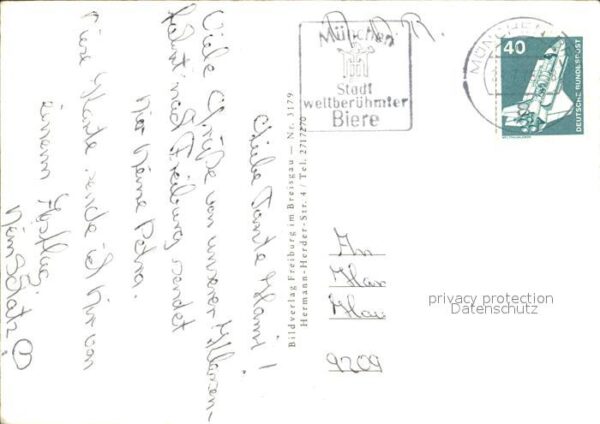 Liebe Tante Hanni!
Viele Grüße von unserer Klassen-
fahrt nach Freiburg sendet
Dir Deine Petra.
Diese Karte sende ich Dir von
einem Ausflug
Dein Schatz
Bildverlag Freiburg im Breisgau — Nr. 3179
Hermann-Herder-Str. 4 / Tel. 2717276
München
Stadt
weltberühmter
Biere
MÜNCHEN
40
DEUTSCHE BUNDESPOST
WELTRAUMLABOR
An
Han
9209
privacy protection
Datenschutz